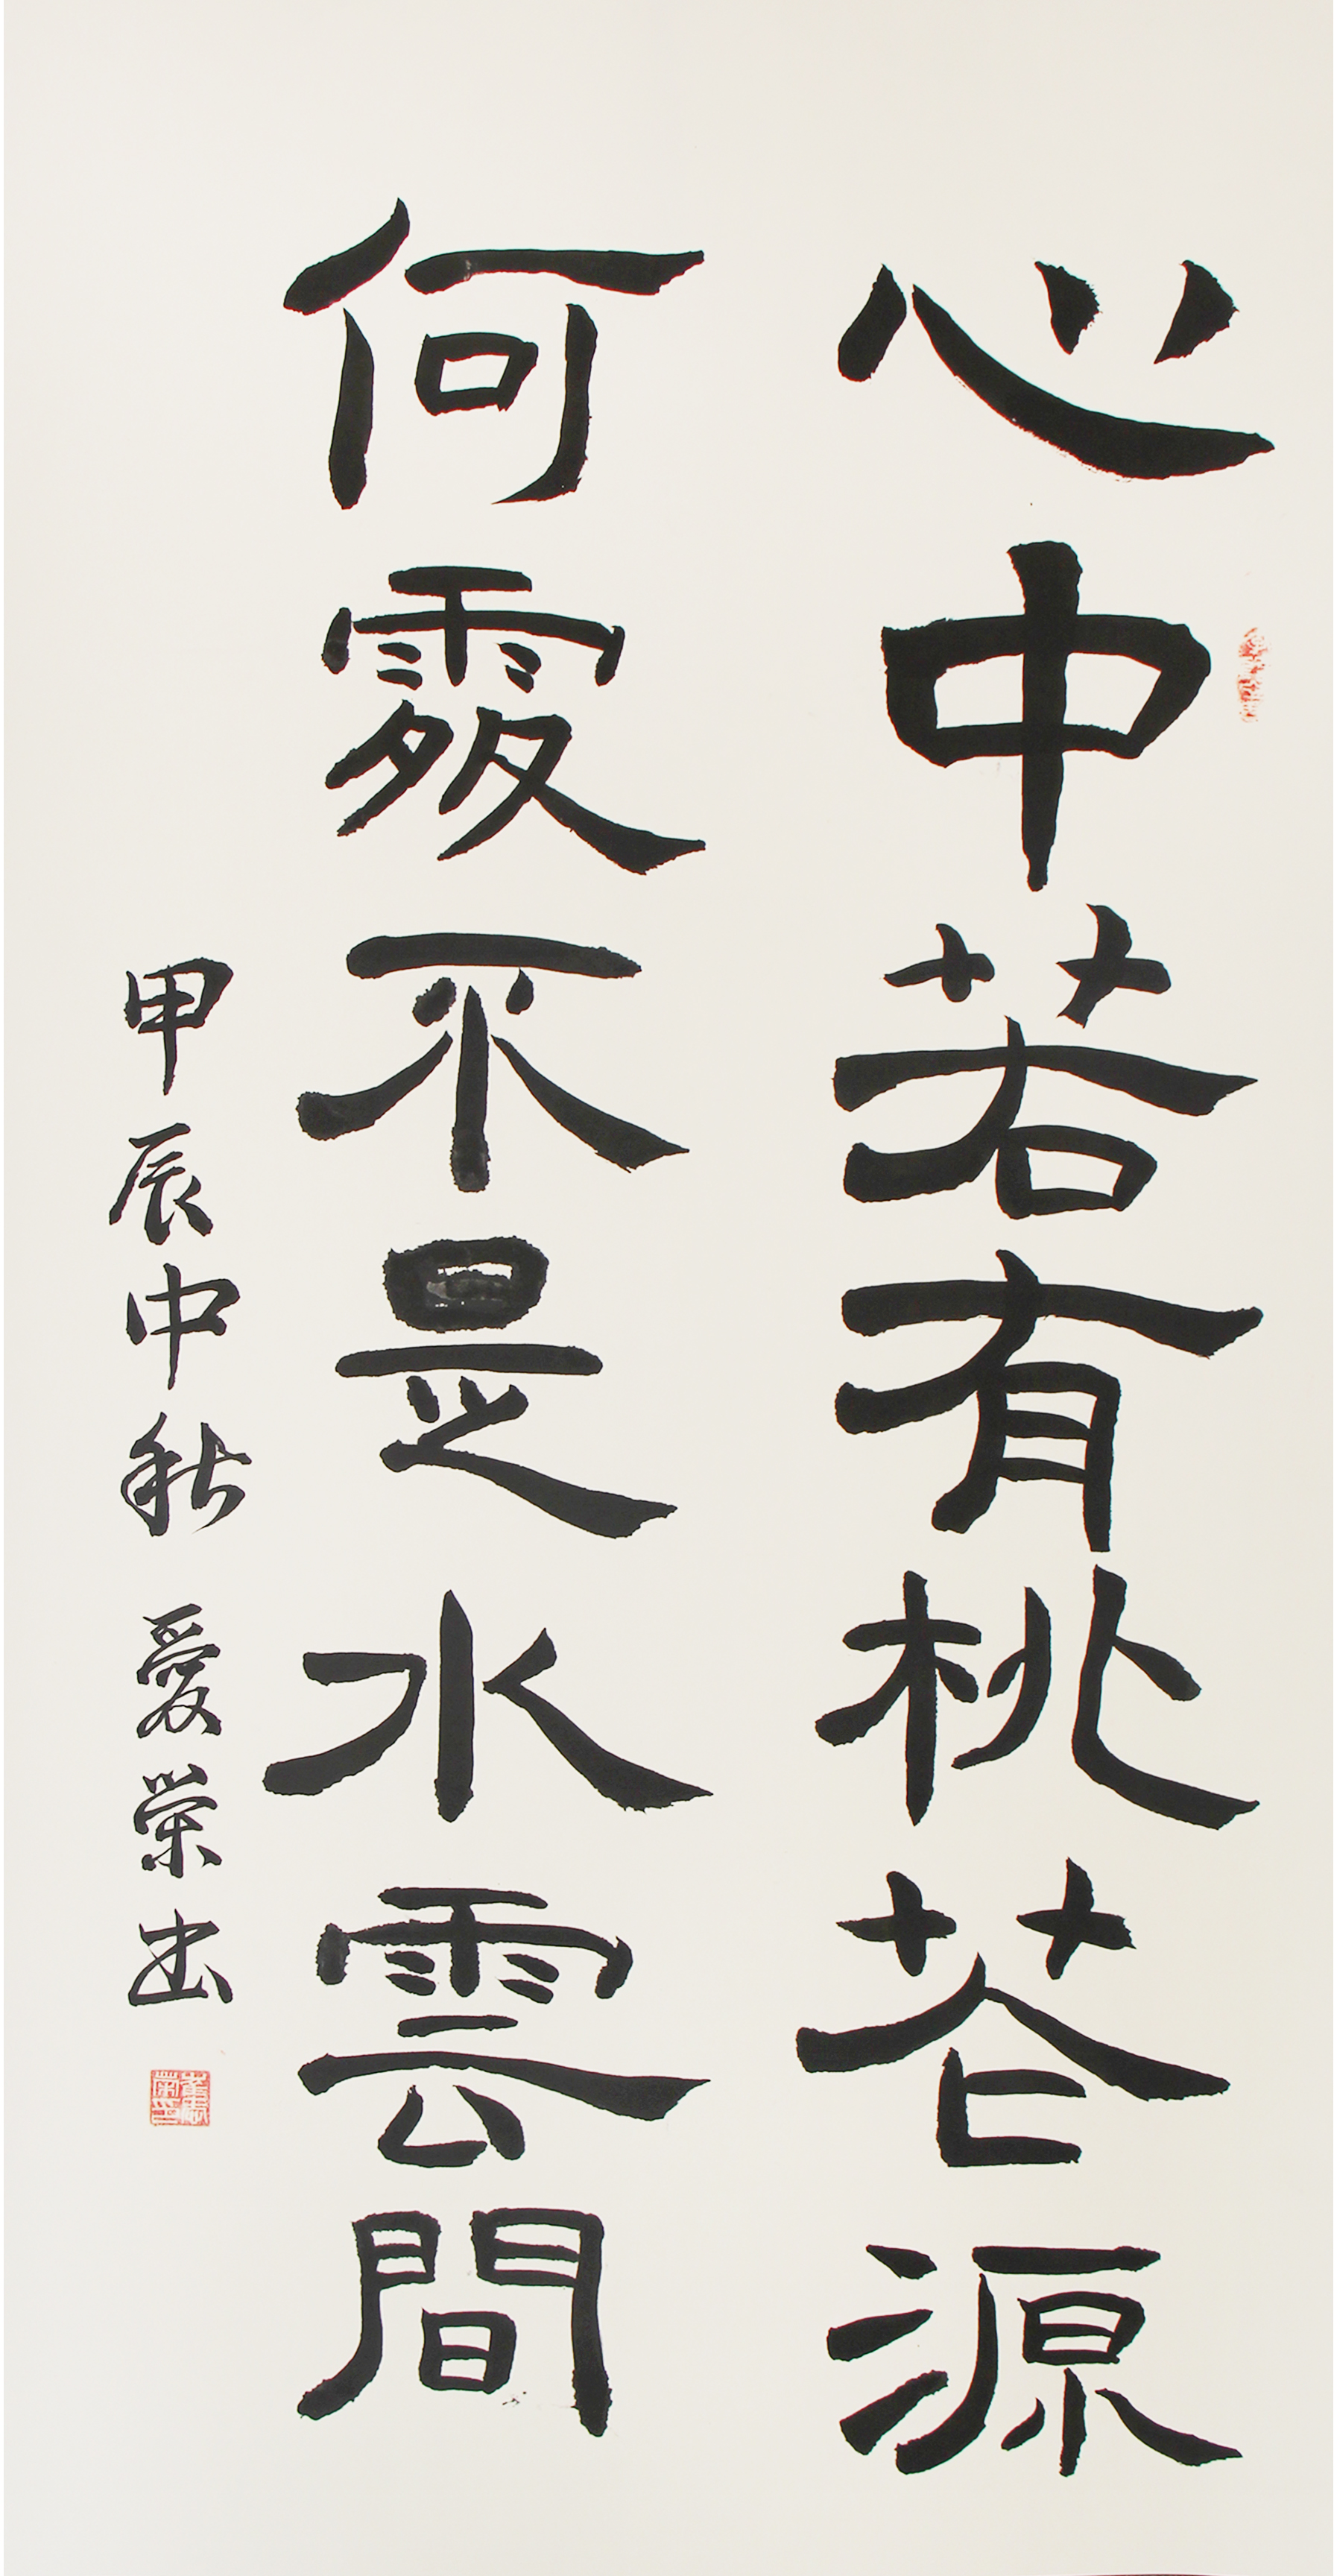 心中若有桃花源
何處不是水雲間
甲辰中秋 愛榮书